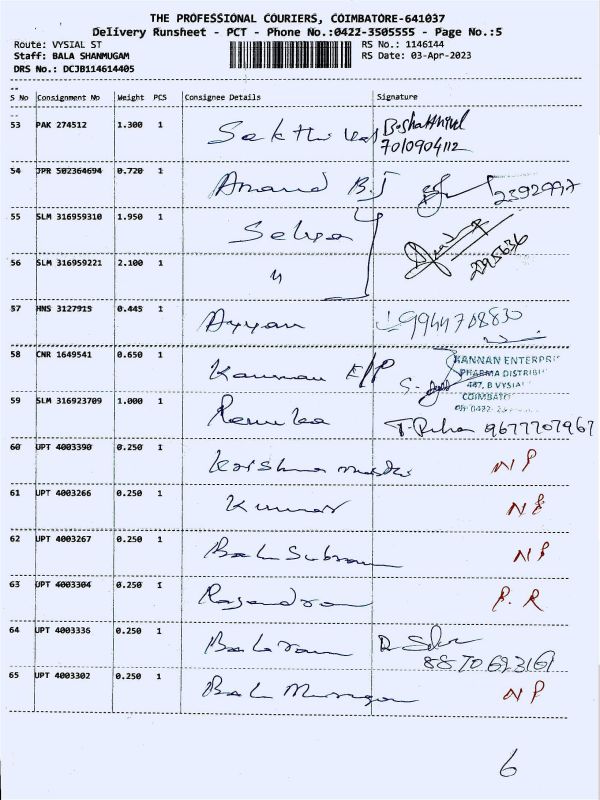 THE PROFESSIONAL COURIERS, COIMBATORE-641037
Delivery Runsheet - PCT - Phone No.:0422-3505555 - Page No.:5
Route: VYSIAL ST
RS No.: 1146144
Staff: BALA SHANMUGAM
RS Date: 03-Apr-2023
DRS No.: DCJB114614405
S No Consignment No Weight PCS Consignee Details Signature
53 PAK 274512 1.300 1 Sakthivel B.Shakthivel
7010904112
54 JPR 502364694 0.720 1 Anand B.J 2592997
55 SLM 316959310 1.950 1 Selva
56 SLM 316959221 2.100 1 " 2395636
57 HNS 3127915 0.445 1 Ayyan 9944708830
58 CNR 1649541 0.650 1 Kannan E/P
KANNAN ENTERPRI
PHARMA DISTRIB
447, B VYSIA
COIMBATO
Ph: 0422-
59 SLM 316923709 1.000 1 Renuka 9677707967
60 UPT 4003390 0.250 1 Krishna NP
61 UPT 4003266 0.250 1 Kumar NP
62 UPT 4003267 0.250 1 Bala Subram NP
63 UPT 4003304 0.250 1 Rajendran P.R
64 UPT 4003336 0.250 1 Balaram
8870693161
65 UPT 4003302 0.250 1 Bala Murugan NP
6